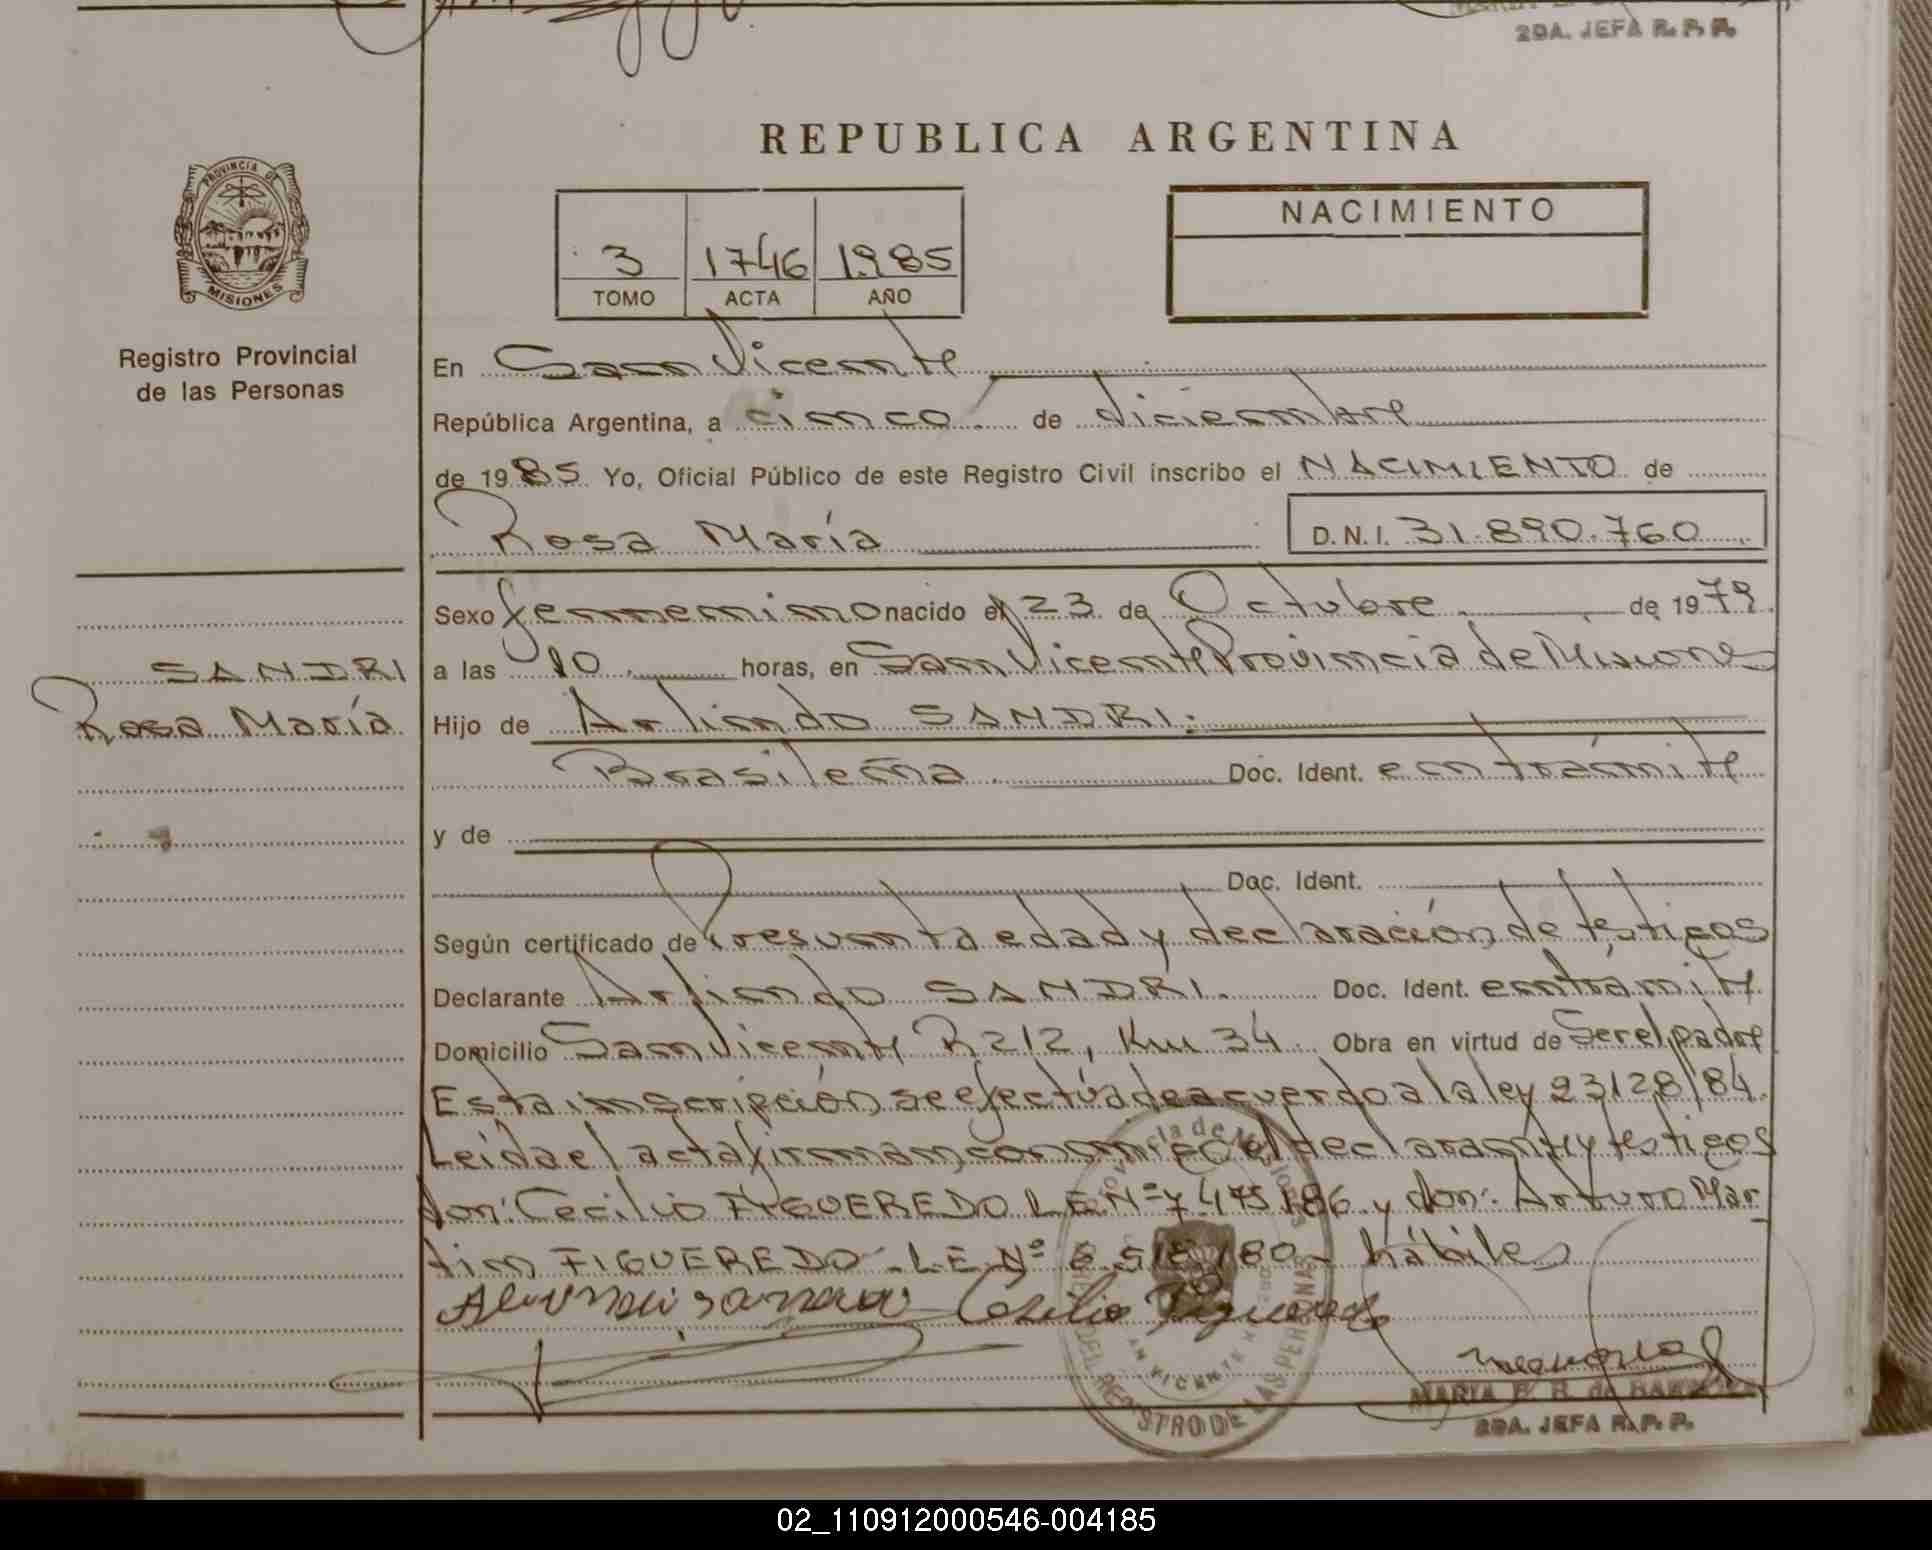 2DA. JEFA R. P. P.
REPUBLICA ARGENTINA
PROVINCIA DE
MISIONES
Registro Provincial
de las Personas
3 1746 1985
TOMO ACTA AÑO
NACIMIENTO
En San Vicente
República Argentina, a cinco de diciembre
de 1985 Yo, Oficial Público de este Registro Civil inscribo el NACIMIENTO de
Rosa María D.N.I. 31.890.760
SANDRI
Rosa María
Sexo femenino nacido el 23 de Octubre de 1979
a las 10 horas, en San Vicente Provincia de Misiones
Hijo de Arlindo SANDRI.
Brasileña Doc. Ident. en trámite
y de
Doc. Ident.
Según certificado de Presunta edad y declaración de testigos
Declarante Arlindo SANDRI. Doc. Ident. en trámite
Domicilio San Vicente R 212, Km 34 Obra en virtud de Ser el padre
Esta inscripción se efectúa de acuerdo a la ley 23128/84.
Leída el acta firman conmigo el declarante y testigos
don: Cecilio FIGUEREDO L.E.Nº 7.475.186 y don: Arturo Mar
tin FIGUEREDO L.E.Nº 8.518.180 hábiles
Cesilio Figueredo
MARIA E. B. de
2DA. JEFA R. P. P.
REGISTRO DE LAS PERSONAS
02_110912000546-004185